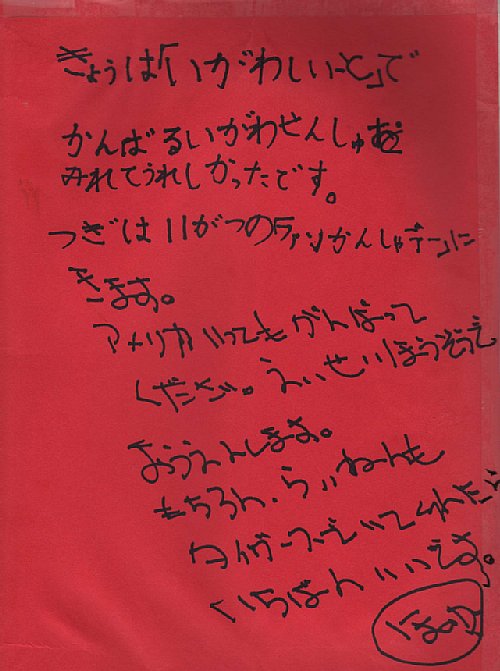 きょうは「いがわしぃーと」で
かんばるいがわせんしゅを
みれてうれしかったです。
つぎは11がつの「ファンかんしゃデー」に
きます。
アメリカいってもがんばって
ください。えいせいほうそうで
おうえんします。
もちろん、らいねんも
タイガースでいてくれたら
いちばんいいです。